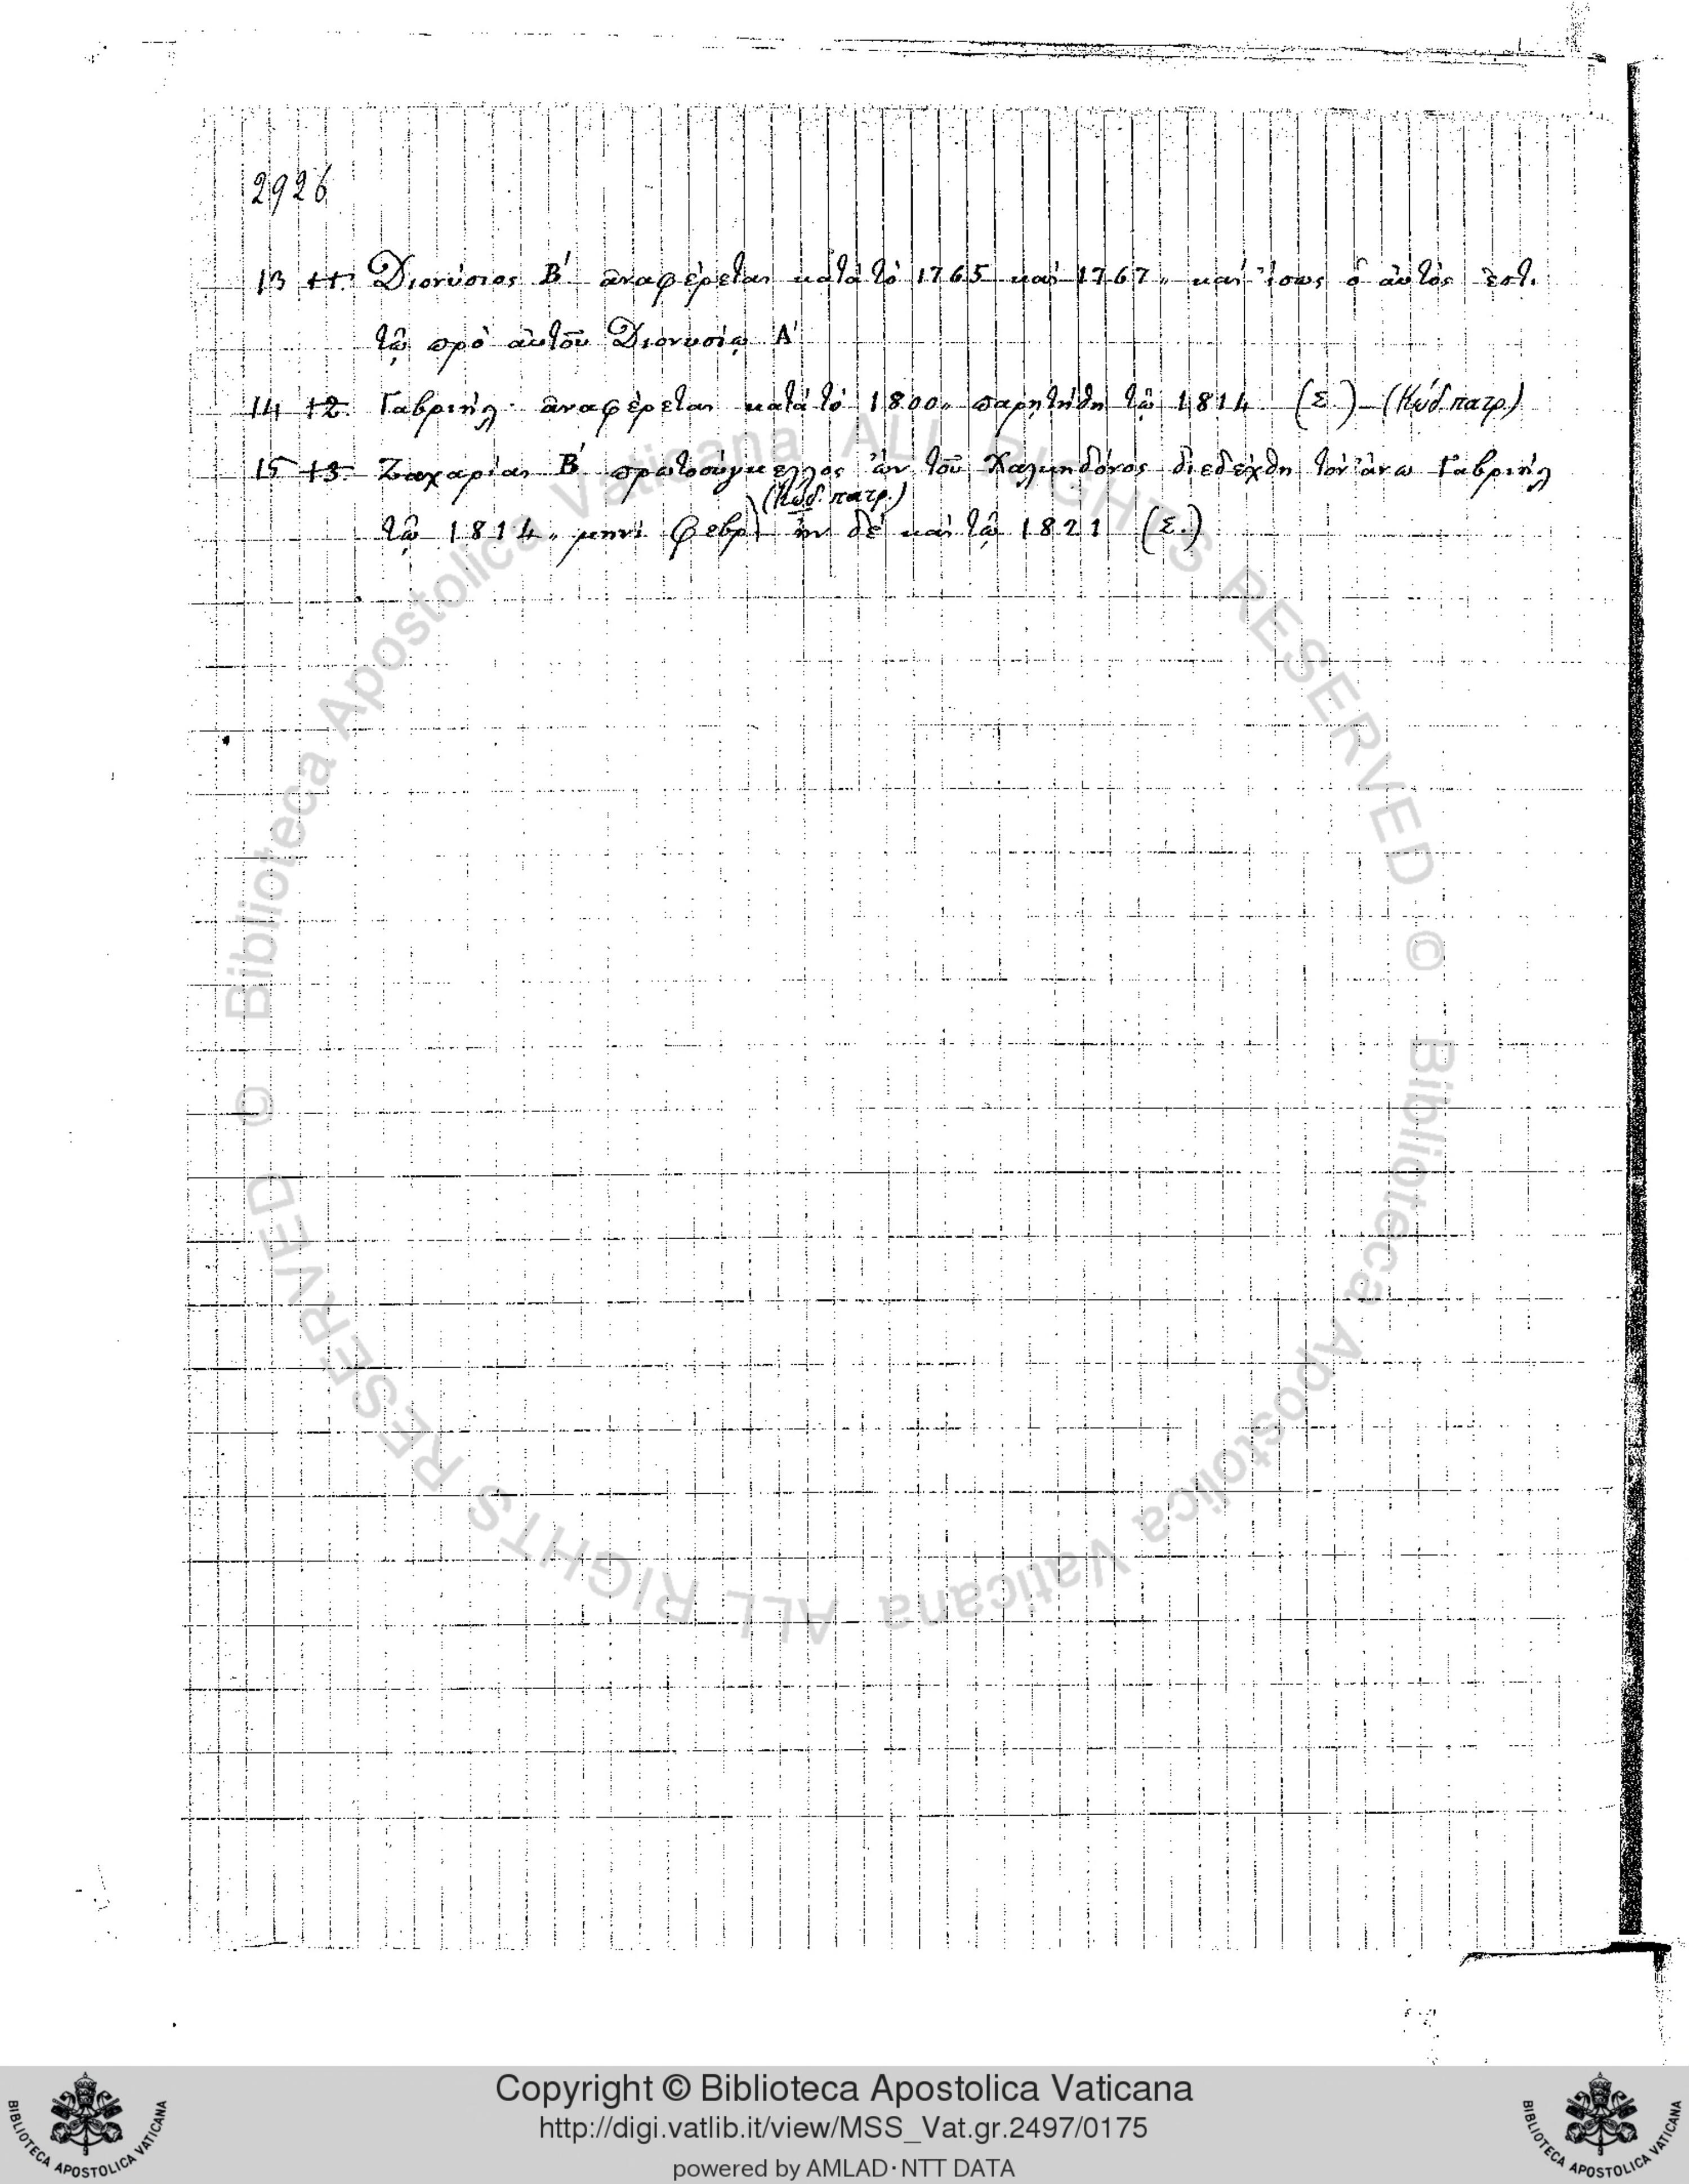 2926
13 11. Διονύσιος Β΄ ἀναφέρεται κατὰ τὸ 1765 καὶ 1767,, καὶ ἴσως ὁ αὐτός ἐστι
τῷ πρὸ αὐτοῦ Διονυσίῳ Α΄
14 12. Γαβριήλ· ἀναφέρεται κατὰ τὸ 1800,, παρῃτήθη τῷ 1814 (Σ.) – (Κώδ. πατρ.)
15 13. Ζαχαρίας Β΄ πρωτοσύγκελλος ὢν τοῦ Χαλκηδόνος διεδέχθη τὸν ἄνω Γαβριήλ
(Κώδ. πατρ.)
τῷ 1814,, μηνὶ φεβρ) ἦν δὲ καὶ τῷ 1821 (Σ.)
© Biblioteca Apostolica Vaticana ALL RIGHTS RESERVED
© Biblioteca Apostolica Vaticana ALL RIGHTS RESERVED
Copyright © Biblioteca Apostolica Vaticana
http://digi.vatlib.it/view/MSS_Vat.gr.2497/0175
powered by AMLAD·NTT DATA
BIBLIOTECA APOSTOLICA VATICANA
BIBLIOTECA APOSTOLICA VATICANA